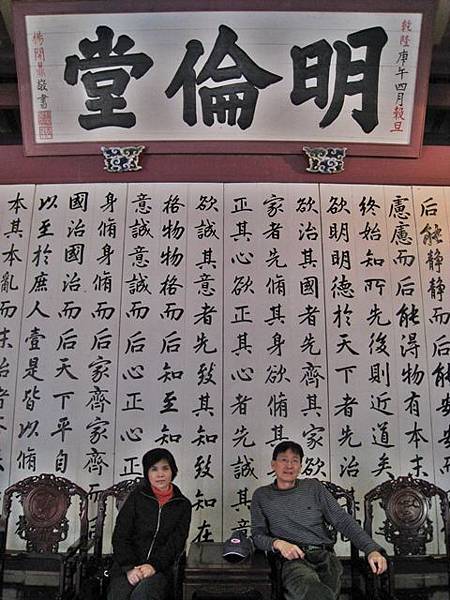 明倫堂
乾隆庚午四月穀旦
楊開鼎敬書
后能靜靜而后能安安
慮慮而后能得物有本末
終始知所先後則近道矣
欲明明德於天下者先治
欲治其國者先齊其家欲
家者先脩其身欲脩其
正其心欲正其心者先誠
欲誠其意者先致其知致知在
格物物格而后知至知
意誠意誠而后心正心
身脩身脩而后家齊家齊
國治國治而后天下平自
以至於庶人壹是皆以脩
本其本亂而末治者